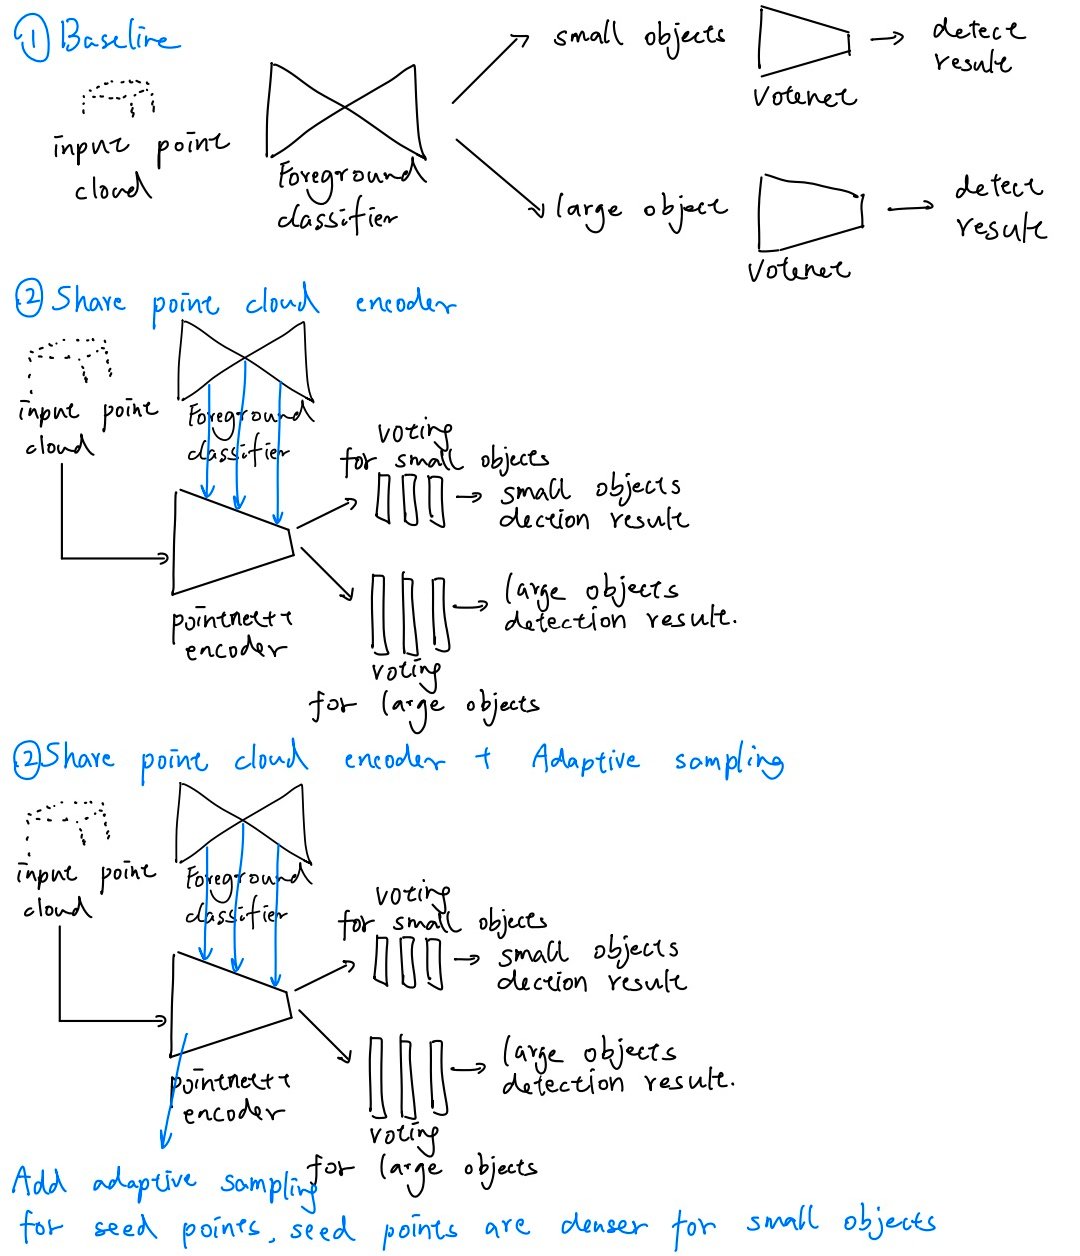 ① Baseline
input point
cloud
Foreground
classifier
small objects
Votenet
detect
result
large object
Votenet
detect
result
② Share point cloud encoder
input point
cloud
Foreground
classifier
pointnet++
encoder
voting
for small objects
small objects
dection result
large objects
detection result.
voting
for large objects
② Share point cloud encoder + Adaptive sampling
input point
cloud
Foreground
classifier
pointnet++
encoder
voting
for small objects
small objects
dection result
large objects
detection result.
voting
for large objects
Add adaptive sampling
for seed points, seed points are denser for small objects